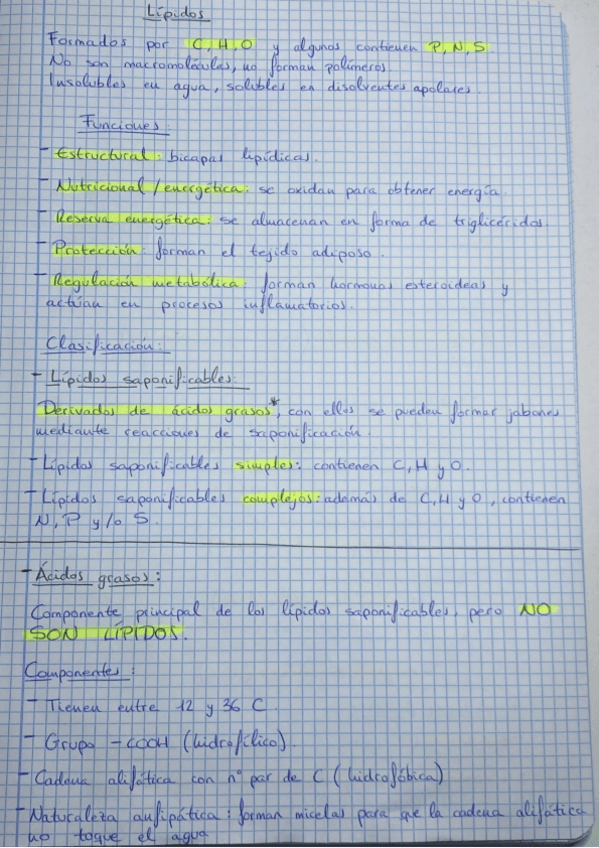 Lípidos
Formados por C, H, O y algunos contienen P, N, S.
No son macromoléculas, no forman polímeros.
Insolubles en agua, solubles en disolventes apolares.
Funciones:
- Estructural: bicapas lipídicas.
- Nutricional/energética: se oxidan para obtener energía.
- Reserva energética: se almacenan en forma de triglicéridos.
- Protección: forman el tejido adiposo.
- Regulación metabólica: forman hormonas esteroideas y
actúan en procesos inflamatorios.
Clasificación:
- Lípidos saponificables:
Derivados de ácidos grasos*, con ellos se pueden formar jabones
mediante reacciones de saponificación.
- Lípidos saponificables simples: contienen C, H y O.
- Lípidos saponificables complejos: además de C, H y O, contienen
N, P y/o S.
- Ácidos grasos:
Componente principal de los lípidos saponificables, pero NO
SON LÍPIDOS.
Componentes:
- Tienen entre 12 y 36 C.
- Grupo -COOH (hidrofílico).
- Cadena alifática con nº par de C (hidrofóbica)
- Naturaleza anfipática: forman micelas para que la cadena alifática
no toque el agua